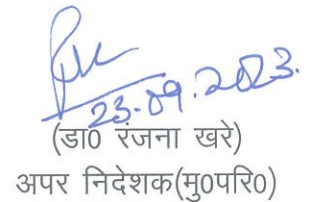 23.09.2023.
(डा0 रंजना खरे)
अपर निदेशक(मु0परि0)